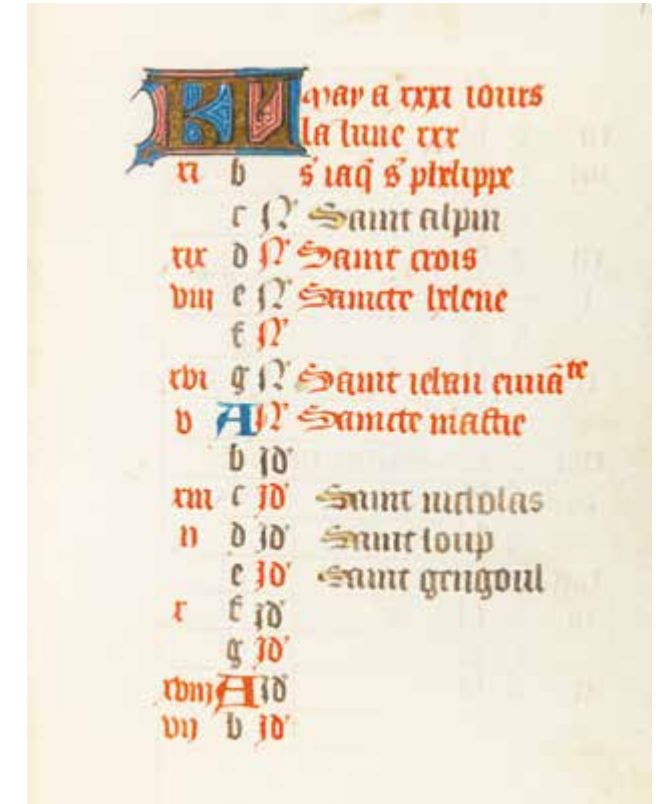 KL may a xxxi iours
la lune xxx
xi b s' iaq̄ s' phelippe
c N' Saint alpin
xix d N' Saint crois
viii e N' Saincte helene
f N'
xvi g N' Saint iehan
v A N' Saincte mastie
b id'
xiii c id' Saint nicholas
ii d id' Saint loup
e id' Saint gengoul
x f id'
g id'
xviii A id
vii b id'